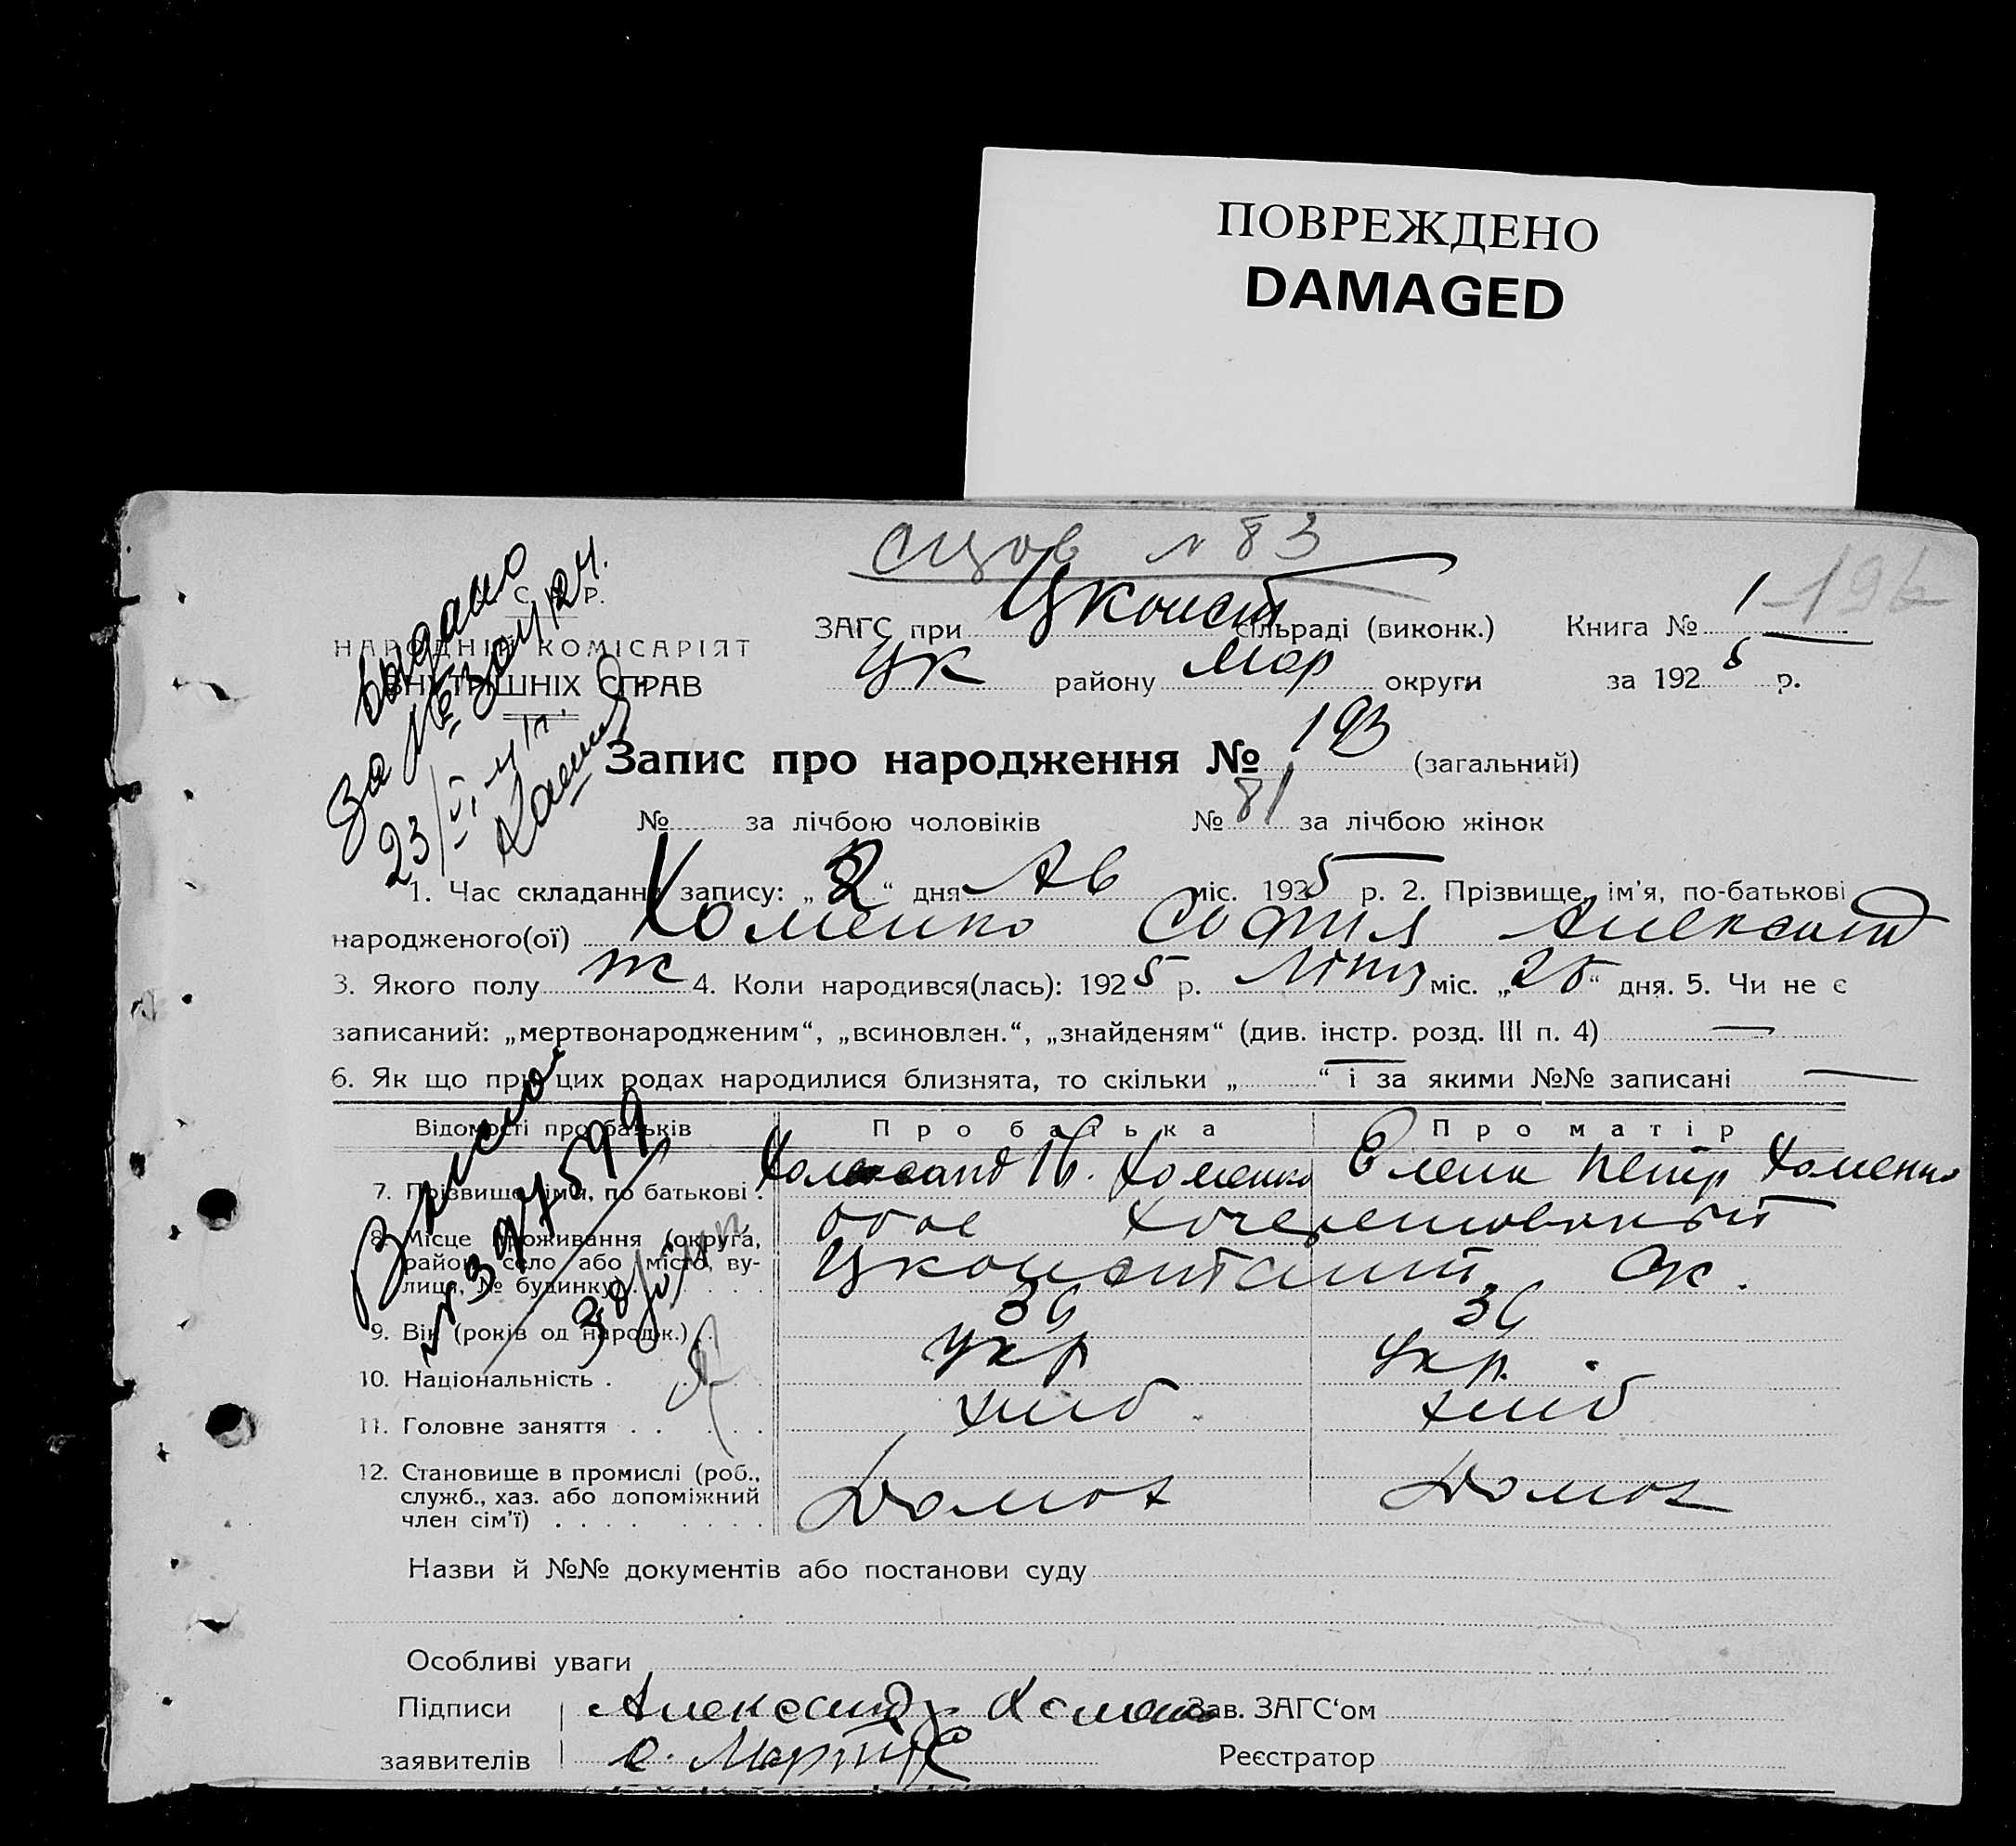 ПОВРЕЖДЕНО
DAMAGED
№ 83
196
выдано
за №
23/VI
У. С. Р. Р.
НАРОДНІЙ КОМІСАРІЯТ
ВНУТРІШНІХ СПРАВ
ЗАГС при Цконст сільраді (виконк.) Книга № 1
Цк району Мар округи за 1925 р.
Запис про народження № 193 (загальний)
№ за лічбою чоловіків № 81 за лічбою жінок
1. Час складання запису: „2“ дня Ав міс. 1925 р. 2. Прізвище, ім'я, по-батькові
народженого(ої) Хоменко София Александ
3. Якого полу ж 4. Коли народився(лась): 1925 р. міс. „25“ дня. 5. Чи не є
записаний: „мертвонародженим“, „всиновлен.“, „знайденям“ (див. інстр. розд. III п. 4) —
6. Як що при цих родах народилися близнята, то скільки „—“ і за якими №№ записані —
Відомості про батьків Про батька Про матір
7. Прізвище, ім'я, по батькові . Хоменко Елена Петр Хоменко
8. Місце проживання (округа,
район, село або місто, ву-
лиця, № будинку) . Цконстант. Ок.
9. Вік (років од народж.) . . 36 36
10. Національність . Укр Укр.
11. Головне заняття . . . . . хліб. хліб
12. Становище в промислі (роб.,
служб., хаз. або допоміжний
член сім'ї) . . . . . . . . Домох Домох
Назви й №№ документів або постанови суду
Особливі уваги
Підписи Александр Хоменко Зав. ЗАГС‘ом
заявителів Реєстратор